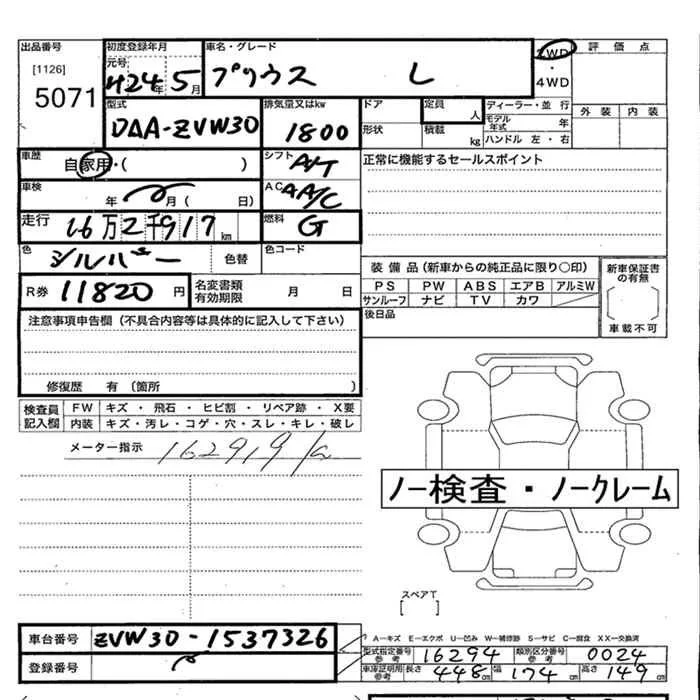 出品番号 初度登録年月 車名・グレード 2WD・4WD 評価点
[1126] 元号 H24年5月 プリウス L
5071
型式 排気量又はkw ドア 定員 人 ディーラー・並行 外装 内装
DAA-ZVW30 1800 形状 積載 kg モデル年式 年
ハンドル 左・右
車歴 自家用・( ) シフト A/T 正常に機能するセールスポイント
車検 年 月( 日) AC AA/C
走行 16万2千917km 燃料 G
色 シルバー 色替 色コード
装備品(新車からの純正品に限り○印) 新車保証書の有無
R券 11820円 名変書類有効期限 月 日 PS PW ABS エアB アルミW
サンルーフ ナビ TV カワ
[ ]
後日品 車載不可
注意事項申告欄(不具合内容等は具体的に記入して下さい)
修復歴 有(箇所 )
検査員記入欄 FW キズ・飛石・ヒビ割・リペア跡・X要
内装 キズ・汚レ・コゲ・穴・スレ・キレ・破レ
メーター指示 162919
ノー検査・ノークレーム
スペアT
[ ]
車台番号 ZVW30-1537326
A―キズ E―エクボ U―凹み W―補修跡 S―サビ C―腐食 XX―交換済
型式指定番号 参考 16294 類別区分番号 参考 0024
登録番号 車庫証明用 参考 長さ 448cm 幅 174cm 高さ 149cm